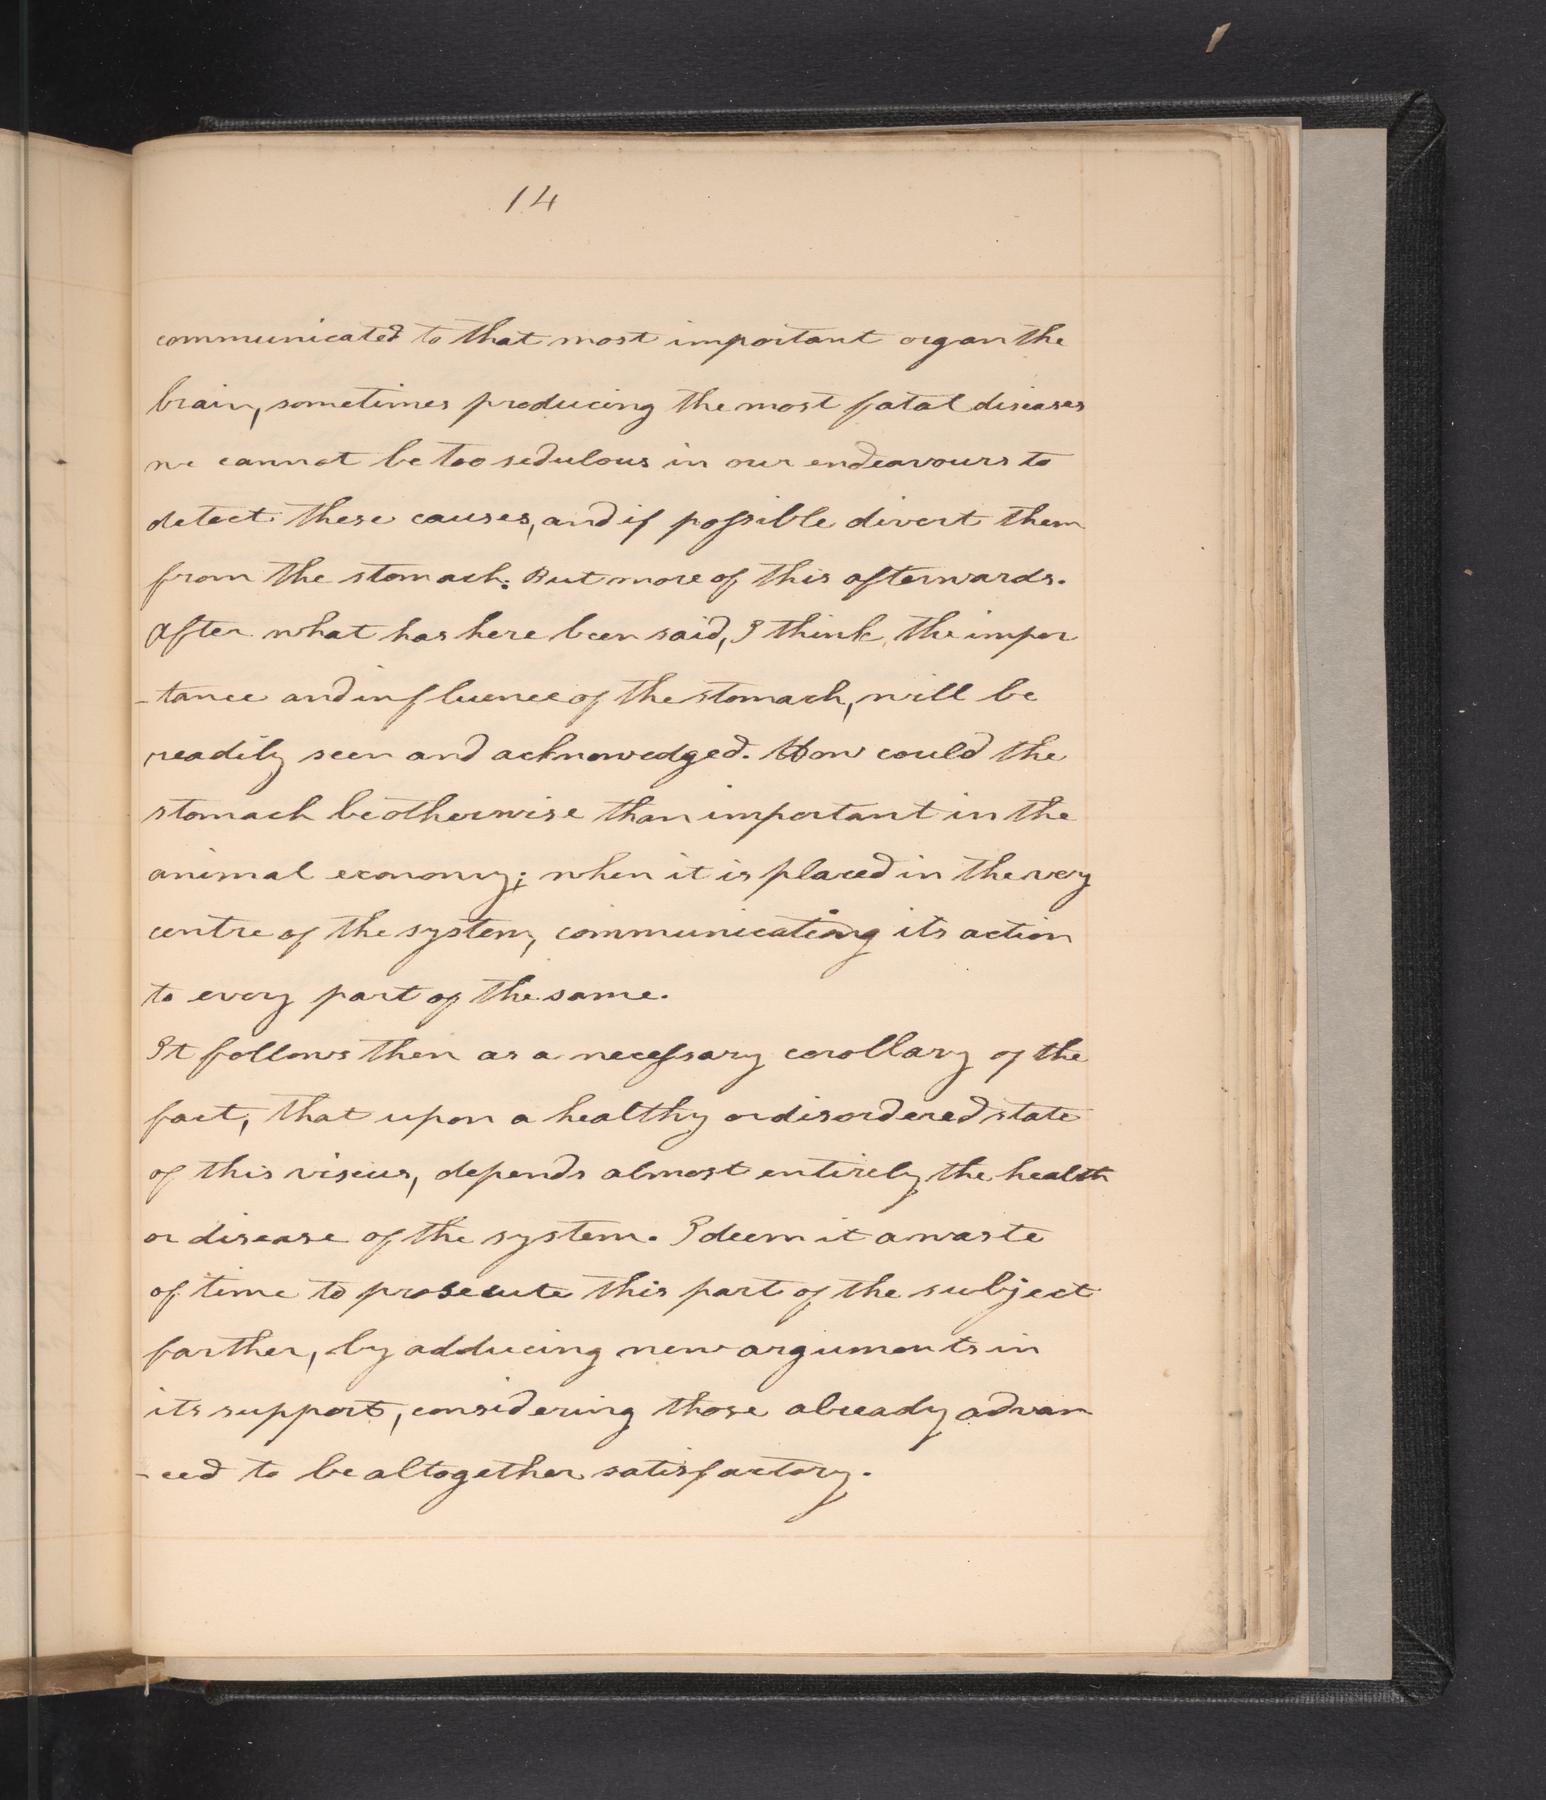 14
communicated to that most important organ the
brain, sometimes producing the most fatal diseases
we cannot be too sedulous in our endeavours to
detect these causes, and if possible divert them
from the stomach. But more of this afterwards.
After what has here been said, I think, the impor
-tance and influence of the stomach, will be
readily seen and acknowedged. How could the
stomach be otherwise than important in the
animal economy; when it is placed in the very
centre of the system, communicating its action
to every part of the same.
It follows then as a necessary corollary of the
fact, that upon a healthy or disordered state
of this viscus, depends almost entirely the health
or disease of the system. I deem it a waste
of time to prosecute this part of the subject
farther, by adducing new arguments in
its support, considering those already advan
-ced to be altogether satisfactory.